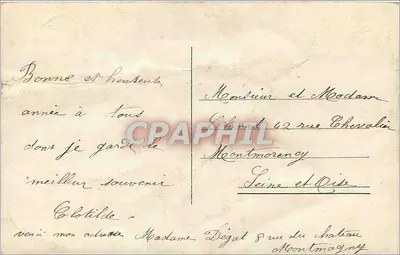 Bonne et heureuse
année à tous
dont je garde le
meilleur souvenir
Clotilde
voici mon adresse Madame Dégat 8 rue du chateau
Montmagny
Monsieur et Madame
42 rue Chevalier
Montmorency
Seine et Oise
CPAPHIL